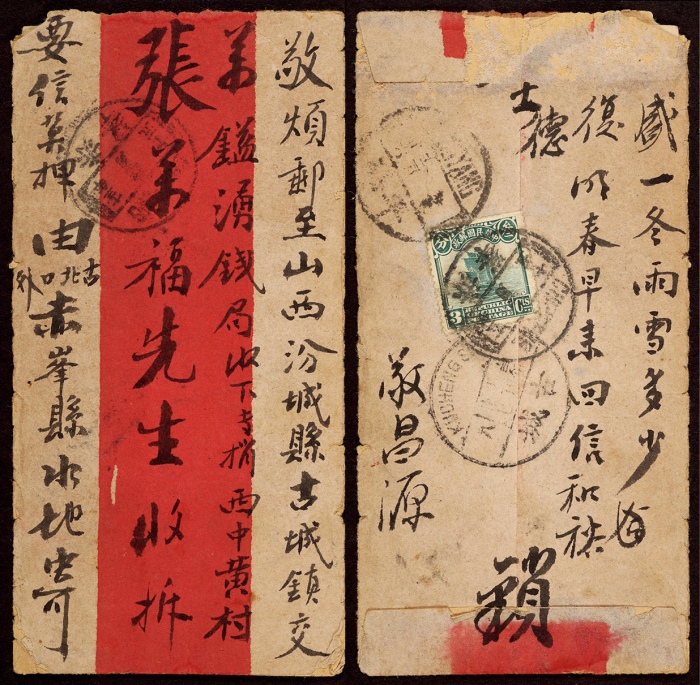 敬煩郵至山西汾城縣古城鎮交
萬鎰湧錢局收下寺捎西中黄村
張萬福先生收拆
要信 押由古北口外赤峯縣水地寄
一冬雨雪多少
復 明春早来回信和裕
士德
分
3 Cts
REPUBLIC
OF CHINA
POSTAGE
KUCHENG
古城
昌源
鎖